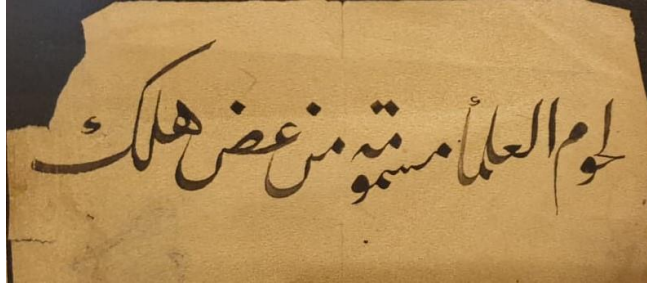 لحوم العلمأ مسمومة من عض هلك